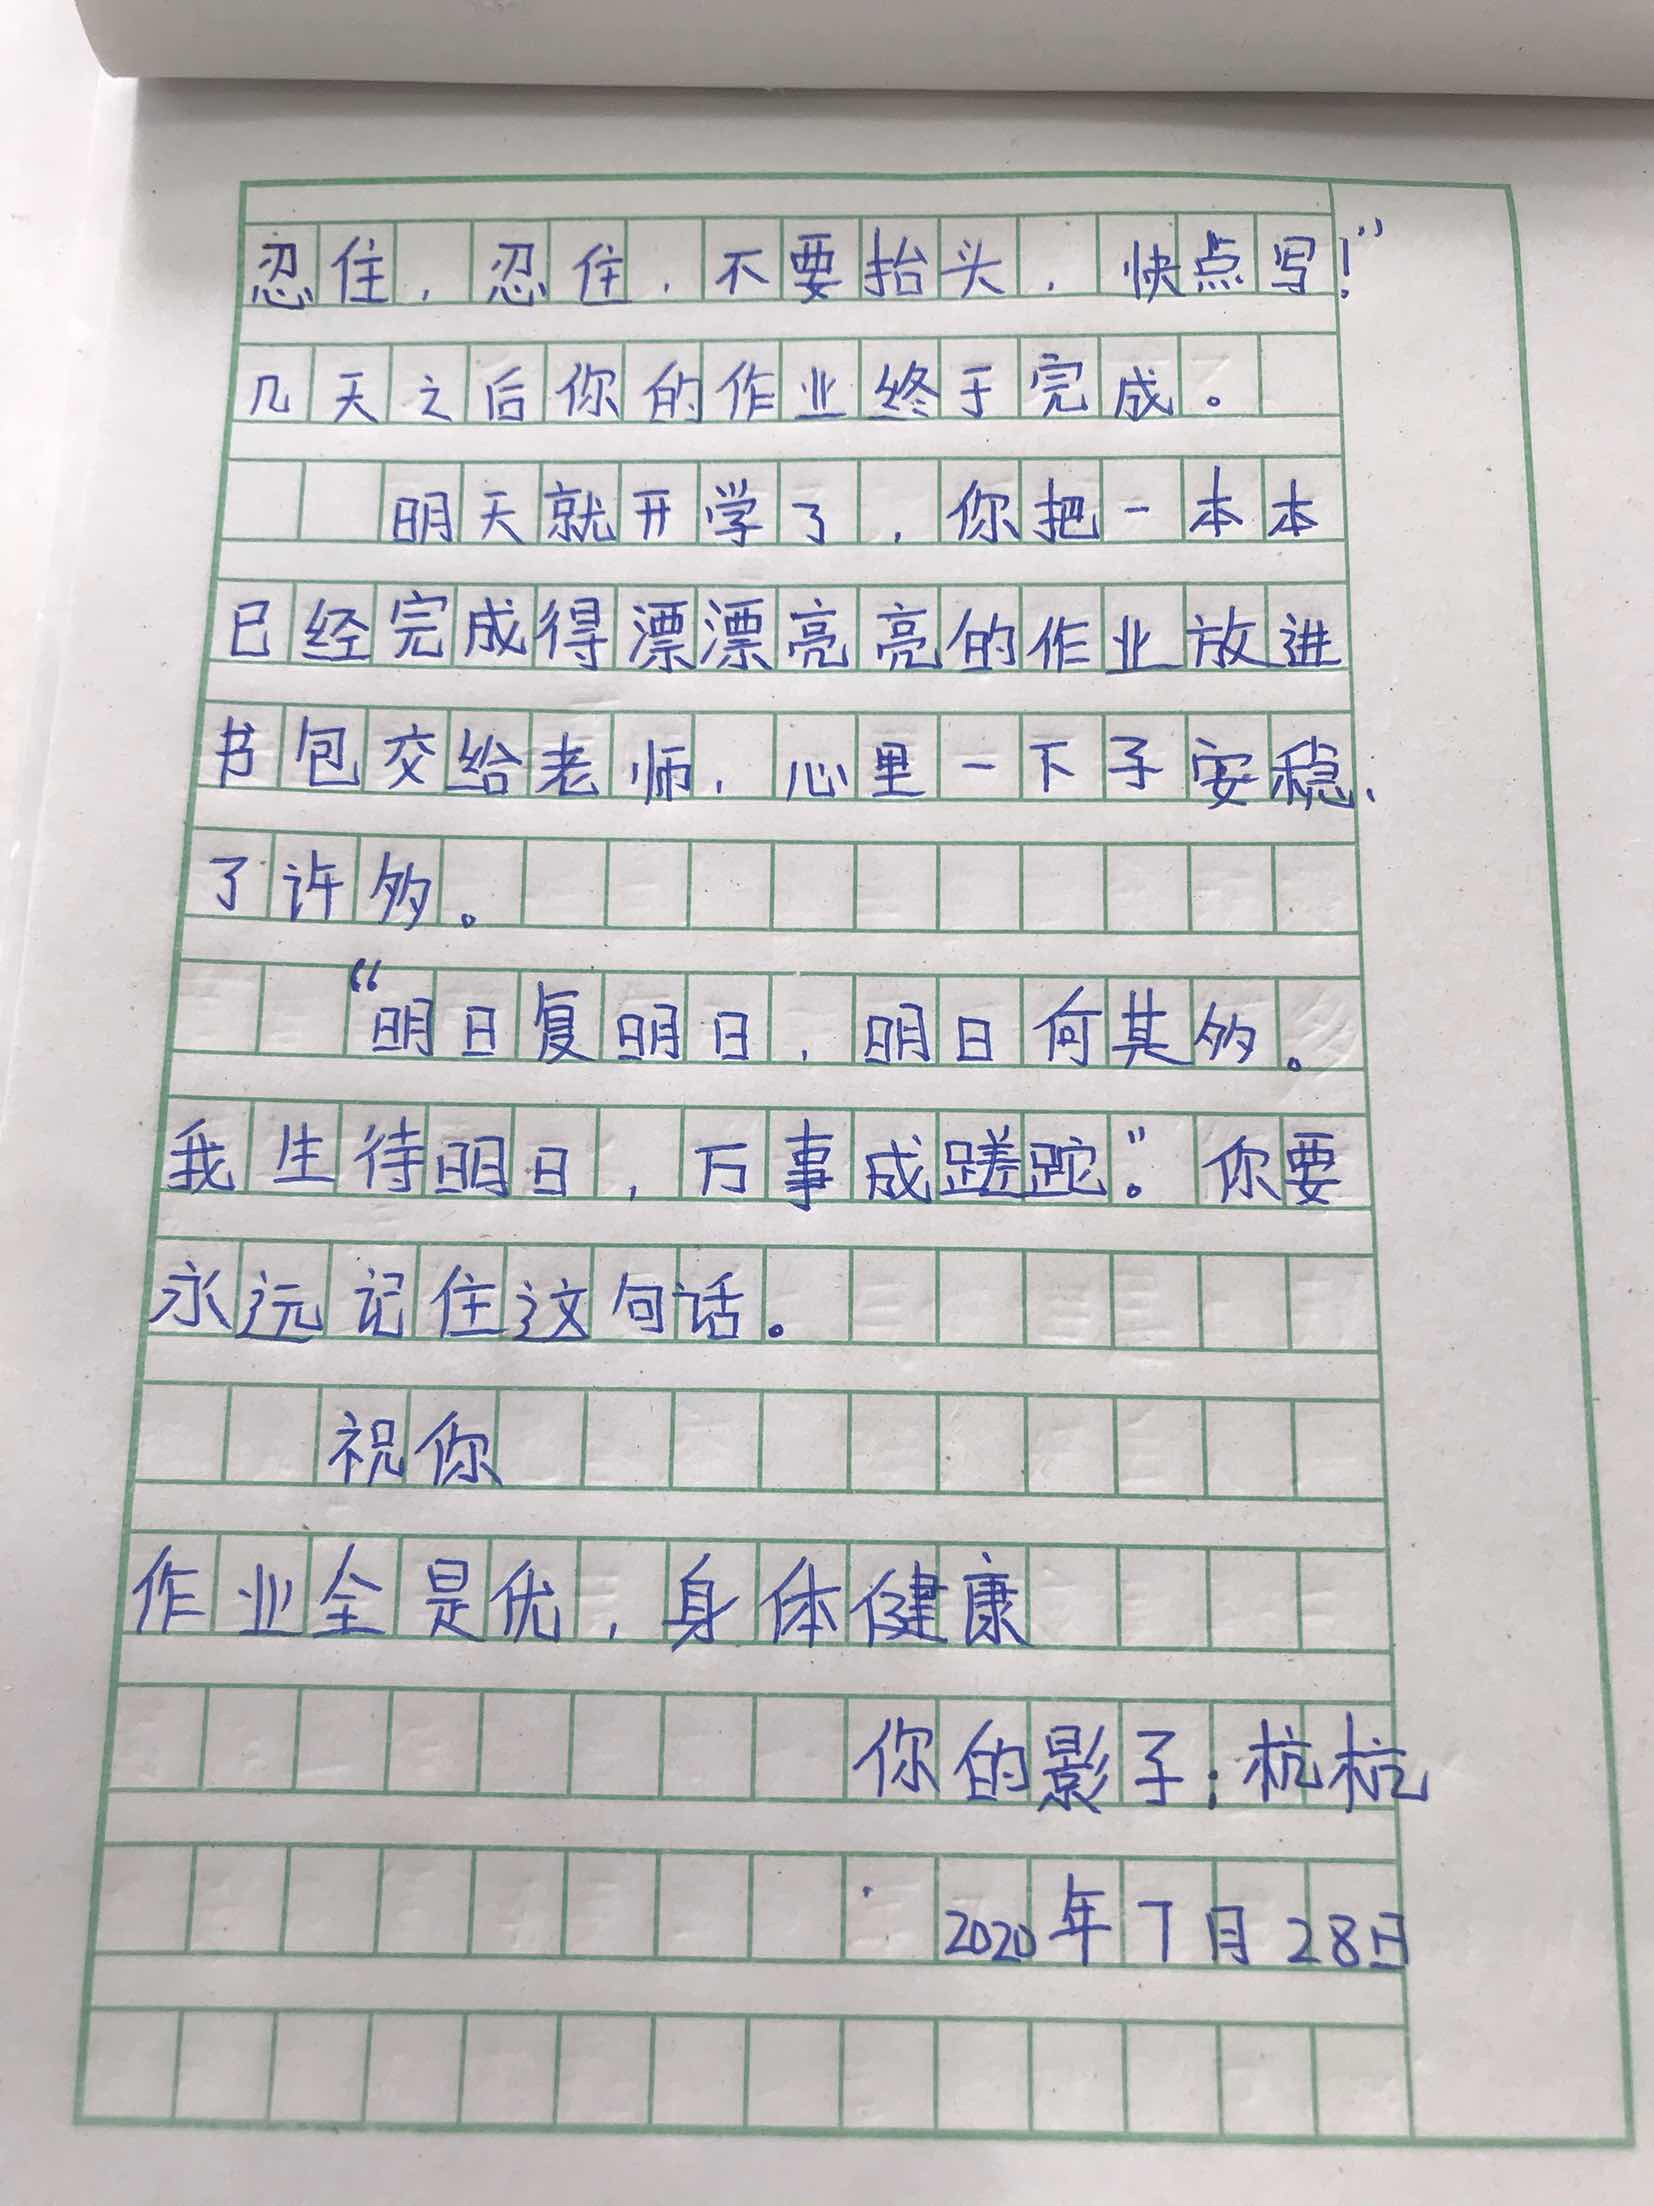 忍住，忍住，不要抬头，快点写！”
几天之后你的作业终于完成。
明天就开学了，你把一本本
已经完成得漂漂亮亮的作业放进
书包交给老师，心里一下子安稳
了许多。
“明日复明日，明日何其多。
我生待明日，万事成蹉跎。”你要
永远记住这句话。
祝你
作业全是优，身体健康
你的影子：杭杭
2020年7月28日